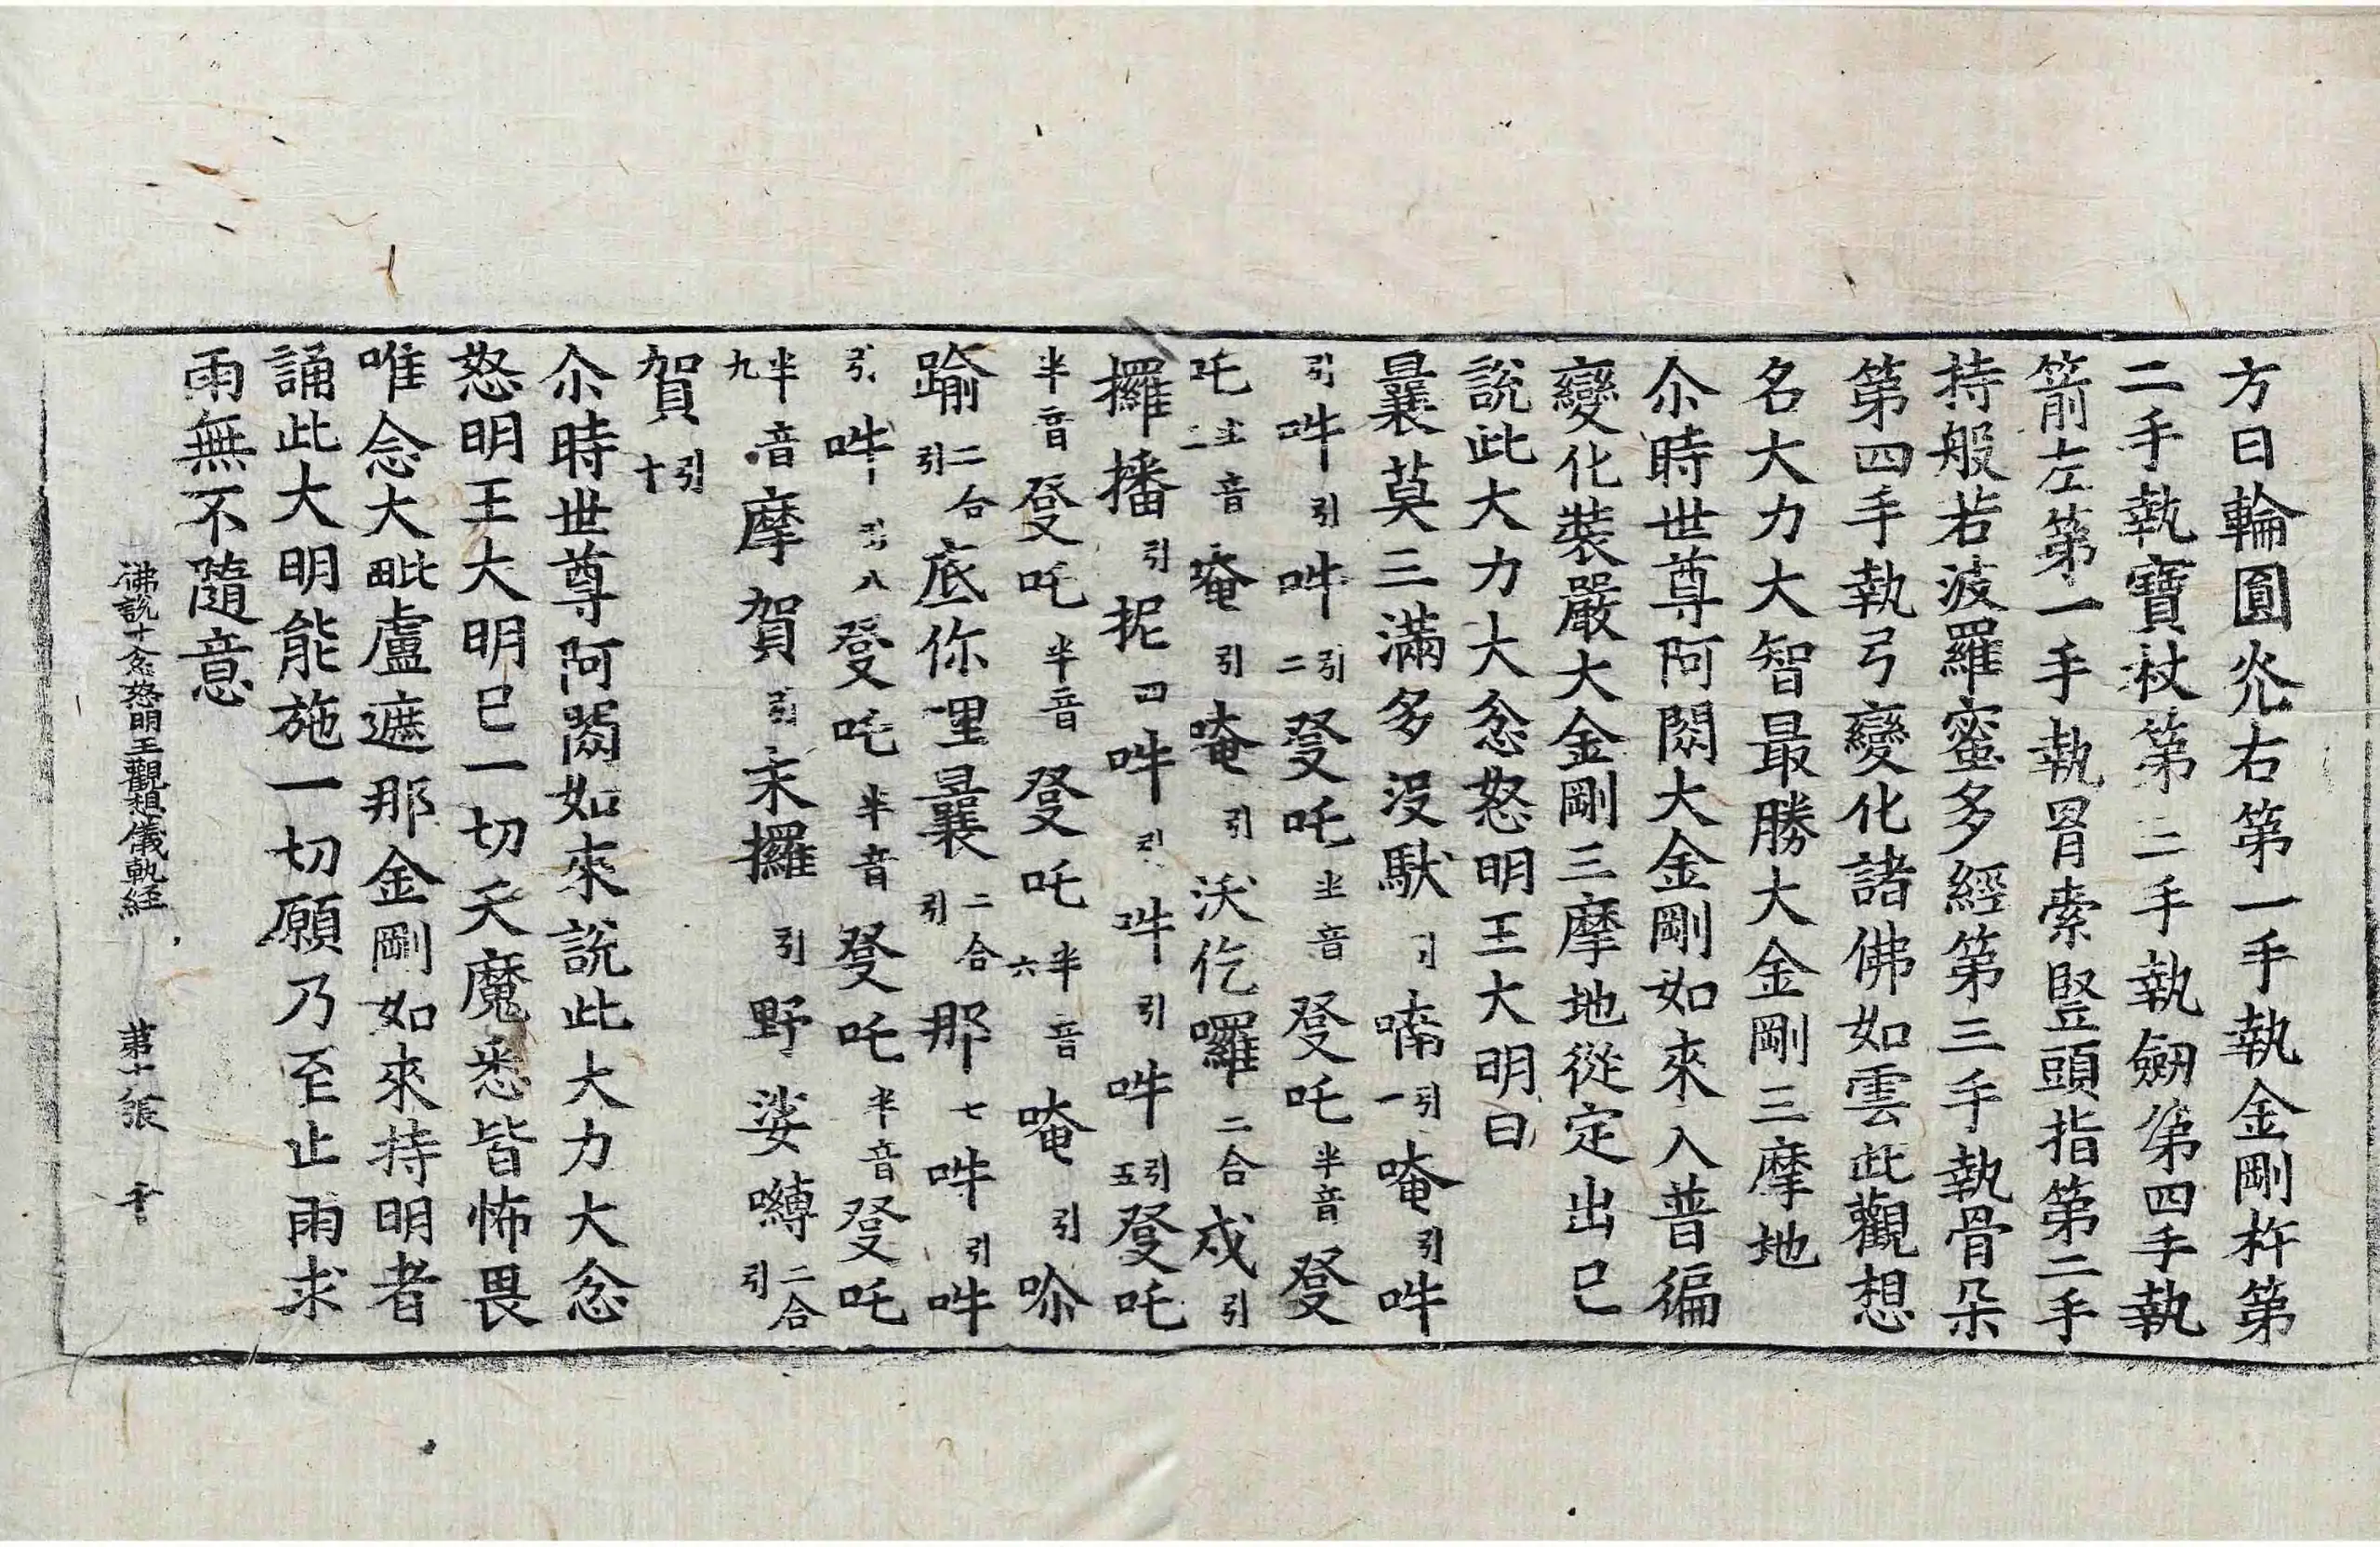 方日輪圓光右第一手執金剛杵第
二手執寶杖第三手執劒第四手執
箭左第一手執罥索豎頭指第二手
持般若波羅蜜多經第三手執骨朵
第四手執弓變化諸佛如雲此觀想
名大力大智最勝大金剛三摩地
尒時世尊阿閦大金剛如來入普徧
變化裝嚴大金剛三摩地從定出已
說此大力大忿怒明王大明曰
曩莫三滿多沒馱引喃引一唵引吽
引吽引吽引二發吒半音發吒半音發
吒半音三唵引唵引沃仡囉二合戍引
攞播引抳四吽引吽引吽引五發吒
半音發吒半音發吒半音六唵引唹
踰二合引底你哩曩二合引那七吽引吽
引吽引八發吒半音發吒半音發吒
半音九摩賀引末攞引野娑嚩二合引
賀引十
尒時世尊阿閦如來說此大力大忿
怒明王大明已一切天魔悉皆怖畏
唯念大毗盧遮那金剛如來持明者
誦此大明能施一切願乃至止雨求
雨無不隨意
佛說十忿怒明王觀想儀軌経 第十張